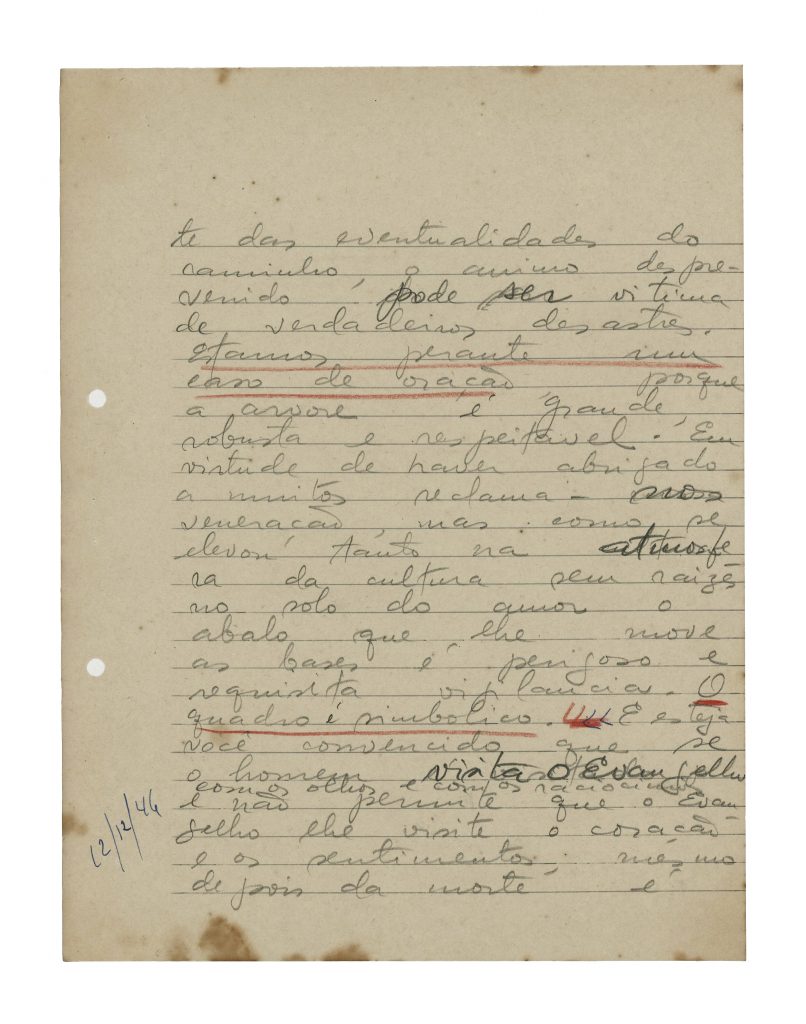 te das eventualidades do
caminho, o animo despre-
venido pode ser vitima
de verdadeiros desastres.
Estamos perante um
caso de oração porque
a arvore é grande,
robusta e respeitavel. Em
virtude de haver abrigado
a muitos reclama- nos
veneração, mas como se
elevou tanto na atmosfe
ra da cultura sem raizes
no solo do amor o
abalo que lhe move
as bases é perigoso e
requisita vigilancia. O
quadro é simbolico. E esteja
você convencido que se
o homem visita o Evangelho
com os olhos e com os raciocinios
e não permite que o Evan
gelho lhe visite o coração
e os sentimentos, mesmo
depois da morte, é
12/12/46